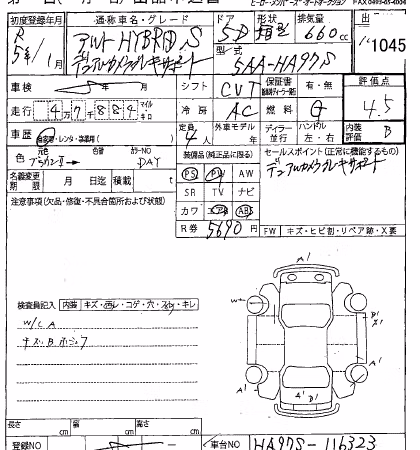 初度登録年月 通称車名・グレード ドア 形状 排気量 出
R 5年/1月 アルト HYBRID S 5D 箱型 660cc 1045
デュアルカメラブレーキサポート 型/式 5AA-HA97S
車検 年 月 シフト CVT 保証書 有・無 評価点
走行 4万7千884 マイル キロ 冷房 AC 燃料 G 4.5
車歴 自家用・レンタ・事業用( ) 定員 4人 外車モデル 年 ディーラー 並行 ハンドル 左・右 内装評価 B
色 元色 色替 カラーNO DAY 装備品(純正品に限る) セールスポイント(正常に機能するもの)
PS PW AW デュアルカメラブレーキサポート
名義変更期限 月 日迄 積載 t SR TV ナビ
注意事項(欠品・修復・不具合箇所および状態) カワ エアB ABS
R券 5690 円 FW キズ・ヒビ割・リペア跡・X要
A'
W
検査員記入 内装 キズ・汚レ・コゲ・穴・スレ・キレ
W/C A
A'
A' B'
A'
長さ cm 幅 cm 高さ cm
登録NO 車台NO HA97S-116323